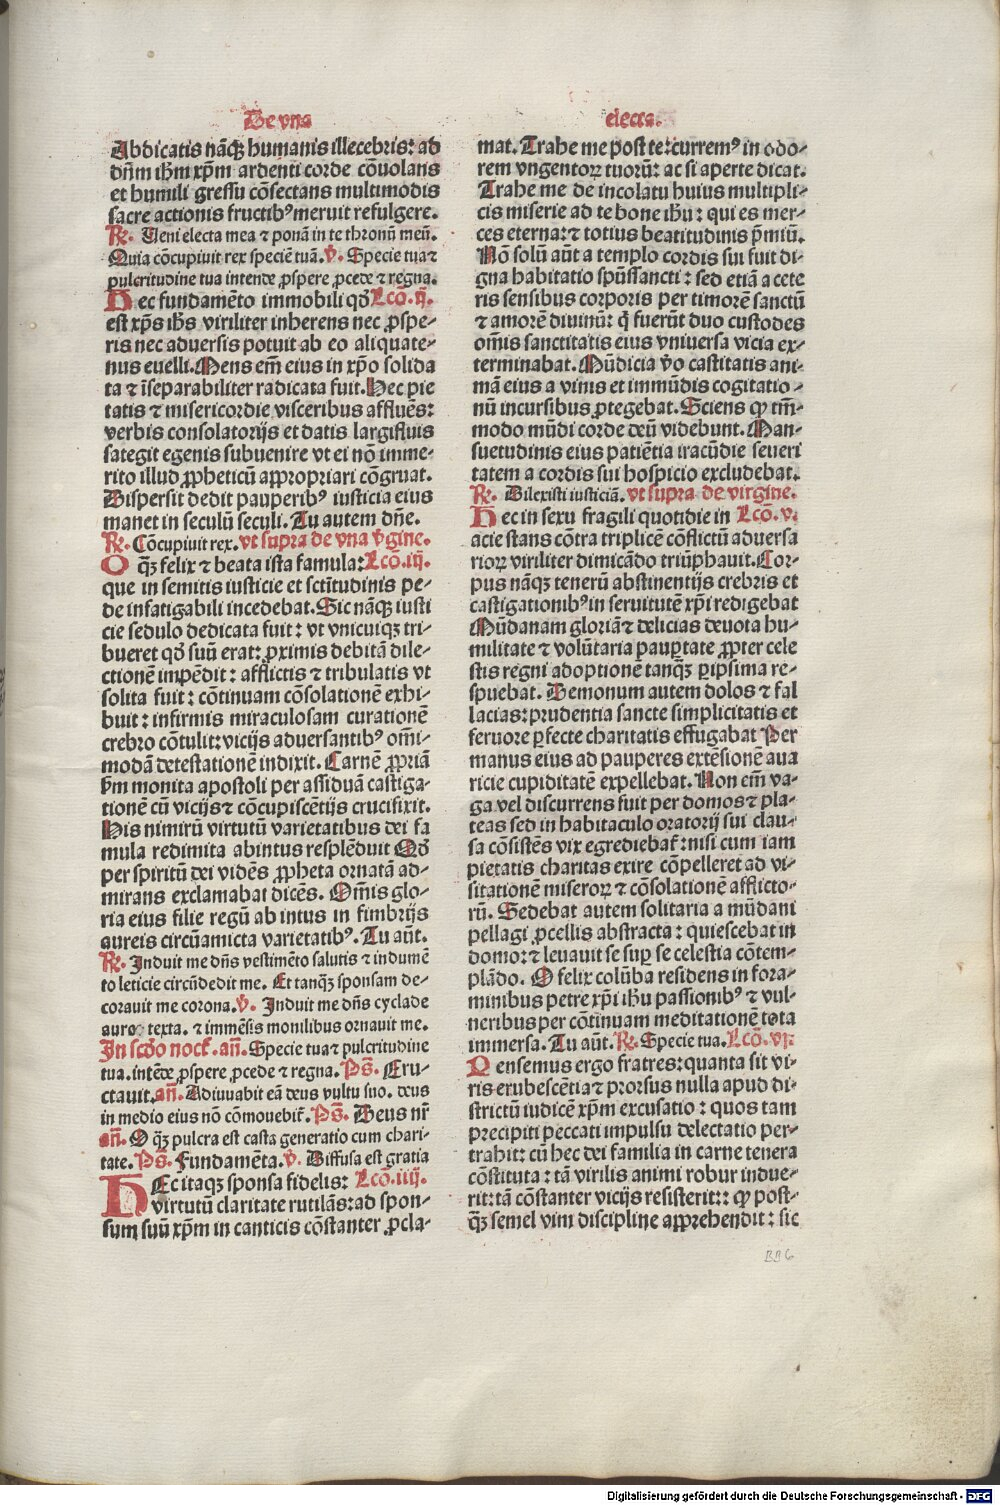 De vna electa.
Abdicatis nāqꝫ humanis illecebris: ad
dn̄m ih̄m xp̄m ardenti corde cōuolans
et humili gressu cōsectans multimodis
sacre actionis fructibꝰ meruit refulgere.
℟. Ueni electa mea ⁊ ponā in te thronū meū.
Quia cōcupiuit rex speciē tuā. ℣. Specie tua ⁊
pulcritudine tua intende ꝓspere ꝓcede ⁊ regna.
Hec fundamēto immobili qd̄ Lcō. ij.
est xp̄s ih̄s viriliter inherens nec ꝓspe-
ris nec aduersis potuit ab eo aliquate-
nus euelli. Mens em̄ eius in xp̄o solida
ta ⁊ īseparabiliter radicata fuit. Hec pie
tatis ⁊ misericordie visceribus affluēs:
verbis consolatorijs et datis largifluis
sategit egenis subuenire vt ei nō imme-
rito illud ꝓpheticū appropriari cōgruat.
Dispersit dedit pauperibꝰ iusticia eius
manet in seculū seculi. Tu autem dn̄e.
℟. Cōcupiuit rex. vt supra de vna v̄gine.
O qꝫ felix ⁊ beata ista famula: Lcō. iij.
que in semitis iusticie et sctītudinis pe-
de infatigabili incedebat. Sic nāqꝫ iusti
cie sedulo dedicata fuit: vt vnicuiqꝫ tri-
bueret qd̄ suū erat: ꝓximis debitā dile-
ctionē impēdit: afflictis ⁊ tribulatis vt
solita fuit: cōtinuam cōsolationē exhi-
buit: infirmis miraculosam curationē
crebro cōtulit: vicijs aduersantibꝰ om̄i-
modā detestationē indixit. Carnē ꝓpriā
ẜm monita apostoli per assiduā castiga-
tionē cū vicijs ⁊ cōcupiscētijs crucifixit.
His nimirū virtutū varietatibus dei fa
mula redimita abintus resplēduit Qd̄
per spiritū dei vidēs ꝓpheta ornatā ad-
mirans exclamabat dicēs. Om̄is glo-
ria eius filie regū ab intus in fimbrijs
aureis circūamicta varietatibꝰ. Tu aūt.
℟. Induit me dn̄s vestimēto salutis ⁊ indumē
to leticie circūdedit me. Et tanqꝫ sponsam de-
corauit me corona. ℣. Induit me dn̄s cyclade
auro texta. ⁊ immēsis monilibus ornauit me.
In scd̄o nocꝭ. an̄. Specie tua ⁊ pulcritudine
tua. intēde ꝓspere ꝓcede ⁊ regna. Ps̄. Eru-
ctauit. an̄. Adiuuabit eā deus vultu suo. deus
in medio eius nō cōmouebiꝭ. Ps̄. Deus nr̄
an̄. O qꝫ pulcra est casta generatio cum chari-
tate. Ps̄. Fundamēta. ℣. Diffusa est gratia
HEc itaqꝫ sponsa fidelis: Lcō. iiij.
virtutū claritate rutilās: ad spon-
sum suū xp̄m in canticis cōstanter ꝓcla-
mat. Trahe me post te: curremꝰ in odo-
rem vngentoꝝ tuorū: ac si aperte dicat.
Trahe me de incolatu huius multipli-
cis miserie ad te bone ih̄u: qui es mer-
ces eterna: ⁊ totius beatitudinis p̄miū.
Nō solū aūt a templo cordis sui fuit di-
gna habitatio spūssancti: sed etiā a cete
ris sensibus corporis per timorē sanctū
⁊ amorē diuinū: q̄ fuerūt duo custodes
om̄is sanctitatis eius vniuersa vicia ex-
terminabat. Mūdicia v̄o castitatis ani-
mā eius a vinis et immūdis cogitatio-
nū incursibus ꝓtegebat. Sciens ꝙ tm̄-
modo mūdi corde deū videbunt. Man-
suetudinis eius patiētia iracūdie seueri
tatem a cordis sui hospicio excludebat.
℟. Dilexisti iusticiā. vt supra de virgine.
Hec in sexu fragili quotidie in Lcō. v.
acie stans cōtra triplicē cōflictū aduersa
rioꝝ viriliter dimicādo triūphauit. Cor-
pus nāqꝫ tenerū abstinentijs crebris et
castigationibꝰ in seruitutē xp̄i redigebat
Mūdanam gloriā ⁊ delicias deuota hu-
militate ⁊ volūtaria paupꝑtate ꝓpter cele
stis regni adoptionē tanqꝫ ꝑipsima re-
spuebat. Demonum autem dolos ⁊ fal
lacias: prudentia sancte simplicitatis et
feruore ꝑfecte charitatis effugabat Per
manus eius ad pauperes extēsionē aua
ricie cupiditatē expellebat. Non em̄ va-
ga vel discurrens fuit per domos ⁊ pla-
teas sed in habitaculo oratorij sui clau-
sa cōsistēs vix egrediebaꝭ: nisi cum iam
pietatis charitas exire cōpelleret ad vi-
sitationē miseroꝝ ⁊ cōsolationē afflicto-
rū. Sedebat autem solitaria a mūdani
pellagi ꝓcellis abstracta: quiescebat in
domo: ⁊ leuauit se suꝑ se celestia cōtem-
plādo. O felix colūba residens in fora-
minibus petre xp̄i ih̄u passionibꝰ ⁊ vul-
neribus per cōtinuam meditationē tota
immersa. Tu aūt. ℟. Specie tua. Lcō. vj.
Pensemus ergo fratres: quanta sit vi-
ris erubescētia ⁊ prorsus nulla apud di-
strictū iudicē xp̄m excusatio: quos tam
precipiti peccati impulsu delectatio per-
trahit: cū hec dei familia in carne tenera
cōstituta: tā virilis animi robur indue-
rit: tā cōstanter vicijs resisterit: ꝙ post-
qꝫ semel vim discipline apprehendit: sic
BB6
Digitalisierung gefördert durch die Deutsche Forschungsgemeinschaft - DFG